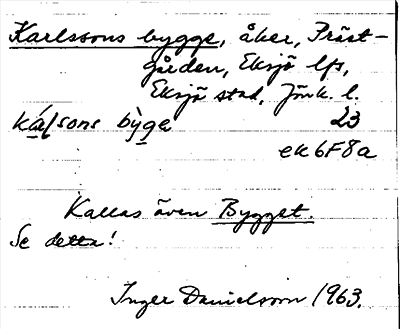 Karlssons bygge, åker, Präst-
gården, Eksjö lfs,
Eksjö stad, Jönk. l.
kálsons bỳge 23
ek6F8a
Kallas även Bygget.
Se detta!
Inger Danielsson 1963.